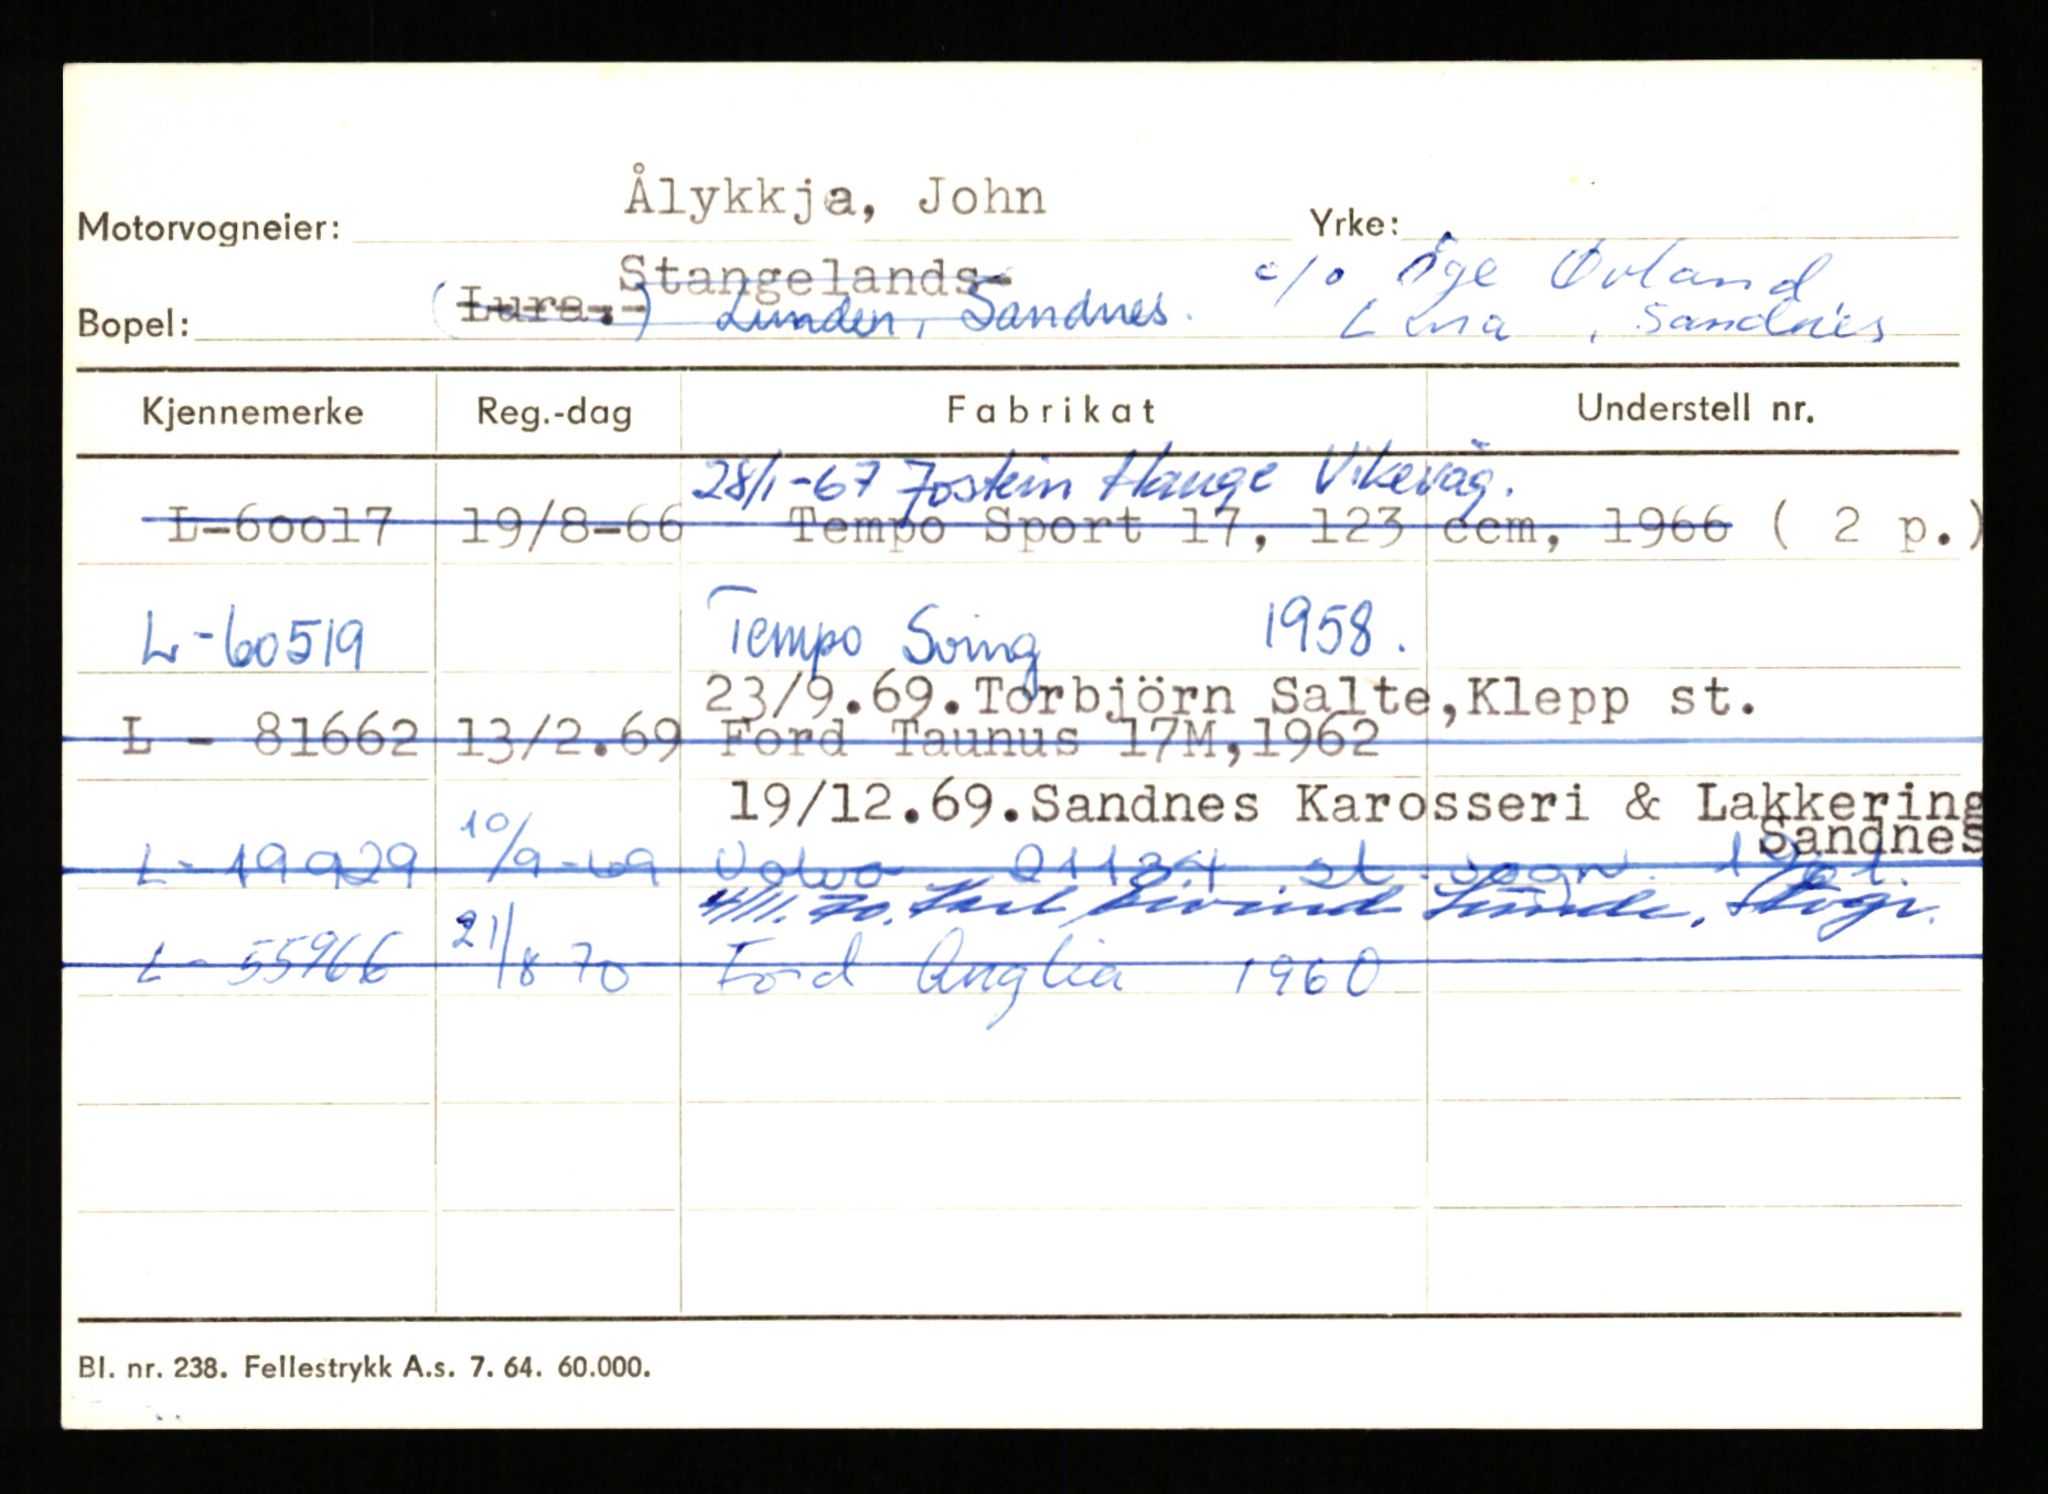 Ålykkja, John
Motorvogneier: Yrke:
Stangelands- c/o Åge Øvland
Bopel: (Lura.-) Lunden, Sandnes. Lura, Sandnes
Kjennemerke Reg.-dag Fabrikat Understell nr.
28/1-67 Jostein Hauge Vikevåg.
L-60017 19/8-66 Tempo Sport 17, 123 ccm, 1966 ( 2 p.)
L-60519 Tempo Swing 1958.
23/9.69.Torbjörn Salte,Klepp st.
L - 81662 13/2.69 Ford Taunus 17M,1962
19/12.69.Sandnes Karosseri & Lakkering
Sandnes
L-19929 10/9-69 Volvo 21134 st.vogn 1961.
4/11.70. Karl Eivind Lunde, Stvgr.
L-55966 21/8 70 Ford Anglia 1960
Bl. nr. 238. Fellestrykk A.s. 7. 64. 60.000.